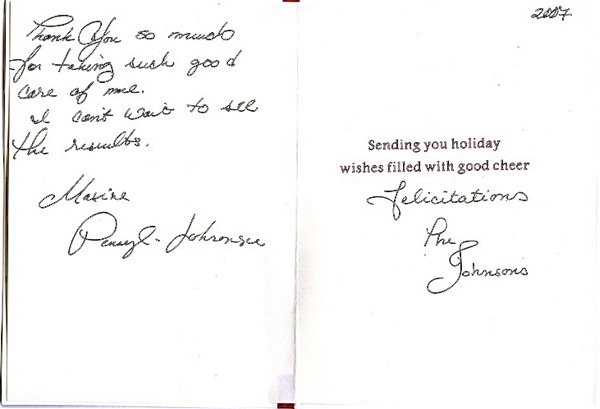 Thank You so much
for taking such good
care of me.
I can't wait to see
the results.
Maxine
2007
Sending you holiday
wishes filled with good cheer
Felicitations
The
Johnsons